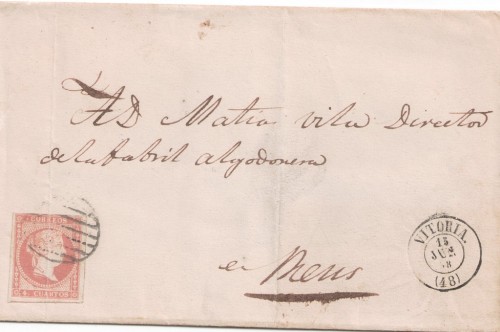 A D Matia vila Director
de la fabril algodonera
en Reus
CORREOS
4 CUARTOS
VITORIA.
15
JUN.
58
(48)